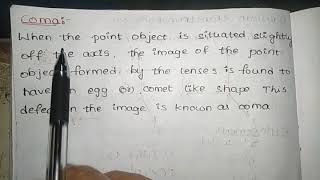 Coma:-
When the point object is situated slightly
off the axis, the image of the point
object formed by the lenses is found to
have an egg or comet like shape This
defect in the image is known as coma